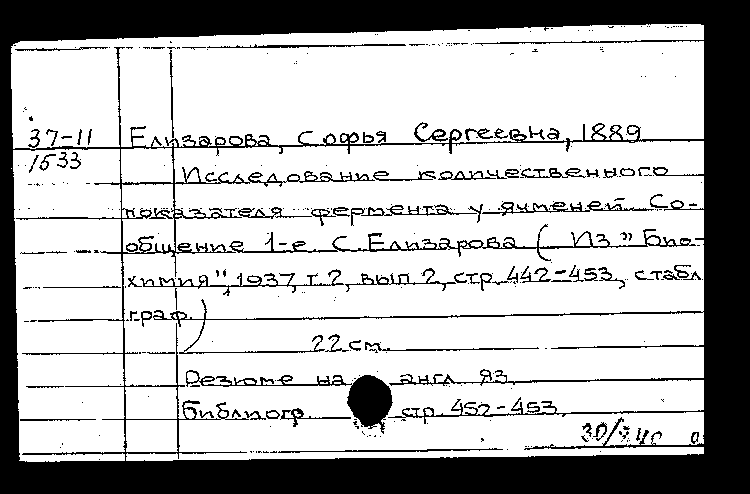 37-11 Елизарова, Софья Сергеевна, 1889
1533
Исследование количественного
показателя фермента у ячменей. Со-
общение 1-е. С. Елизарова ( Из "Био-
химия", 1937, т. 2, вып. 2, стр. 442-453, с табл
граф. )
22 см.
Резюме на англ. яз.
Библиогр. стр. 452-453.